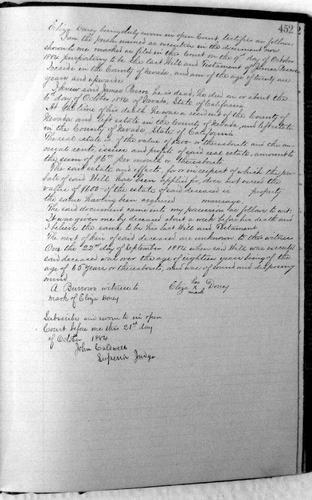 452
Eliza Dorey being duly sworn in open Court, testifies as follows:
I am the person named as executrix in the document now
shown to me marked as filed in this court on the 9th day of October
1884 purporting to be the last Will and Testament of James Pascoe
reside in the County of Nevada, and am of the age of twenty one
years and upwards
I knew said James Pascoe, he is dead, he died on or about the
6th day of October 1884 at Nevada, State of California
At the time of his death he was a resident of the County of
Nevada and left estate in the County of Nevada, and left estate
in the County of Nevada, State of California
The real estate is of the value of $800 or thereabouts and the an-
nual rents, issues and profits of said real estate, amount to
the sum of $6 per month or thereabouts
The said estate and effects, for or in respect of which the pro-
bate of said Will has been applied for, does not exceed the
value of $800 of the estate of said deceased is property
the same having been acquired marriage
The said document came into my possession as follows to wit:
It was given me by deceased about a week before his death and
I believe the same to be his last Will and Testament
The next of kin of said deceased are unknown to this witness
On the 22nd day of September 1884 when said Will was executed
said deceased was over the age of eighteen years being of the
age of 65 years or thereabouts, and was of sound and disposing
mind
A Burrows witness to
mark of Eliza Dorey
Eliza her X mark Dorey
Subscribed and sworn to in open
Court before me this 21st day
of October 1884
John Caldwell
Superior Judge